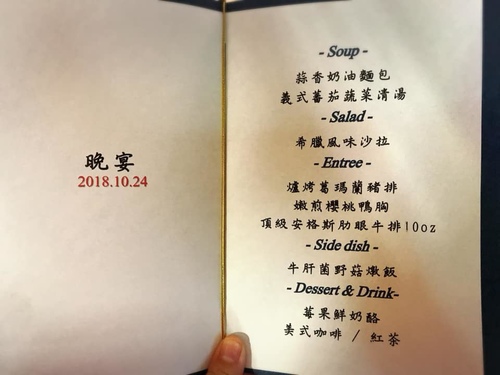 晚宴
2018.10.24
- Soup -
蒜香奶油麵包
義式蕃茄蔬菜清湯
- Salad -
希臘風味沙拉
- Entree -
爐烤葛瑪蘭豬排
嫩煎櫻桃鴨胸
頂級安格斯肋眼牛排10oz
- Side dish -
牛肝菌野菇燉飯
- Dessert & Drink-
莓果鮮奶酪
美式咖啡 / 紅茶